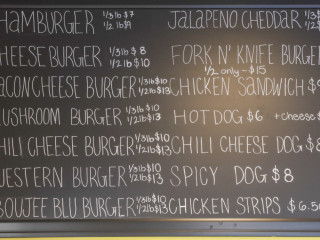 HAMBURGER 1/3lb $7 1/2lb $9
CHEESE BURGER 1/3lb $8 1/2lb $10
BACON CHEESE BURGER 1/3lb $10 1/2lb $13
MUSHROOM BURGER 1/3lb $10 1/2lb $13
CHILI CHEESE BURGER 1/3lb $10 1/2lb $13
WESTERN BURGER 1/3lb $10 1/2lb $13
BOUJEE BLU BURGER 1/3lb $10 1/2lb $13
JALAPENO CHEDDAR 1/3 1/2
FORK N' KNIFE BURGER
1/2 only - $15
CHICKEN SANDWICH $9
HOT DOG $6 + cheese $
CHILI CHEESE DOG $8
SPICY DOG $8
CHICKEN STRIPS $6.5